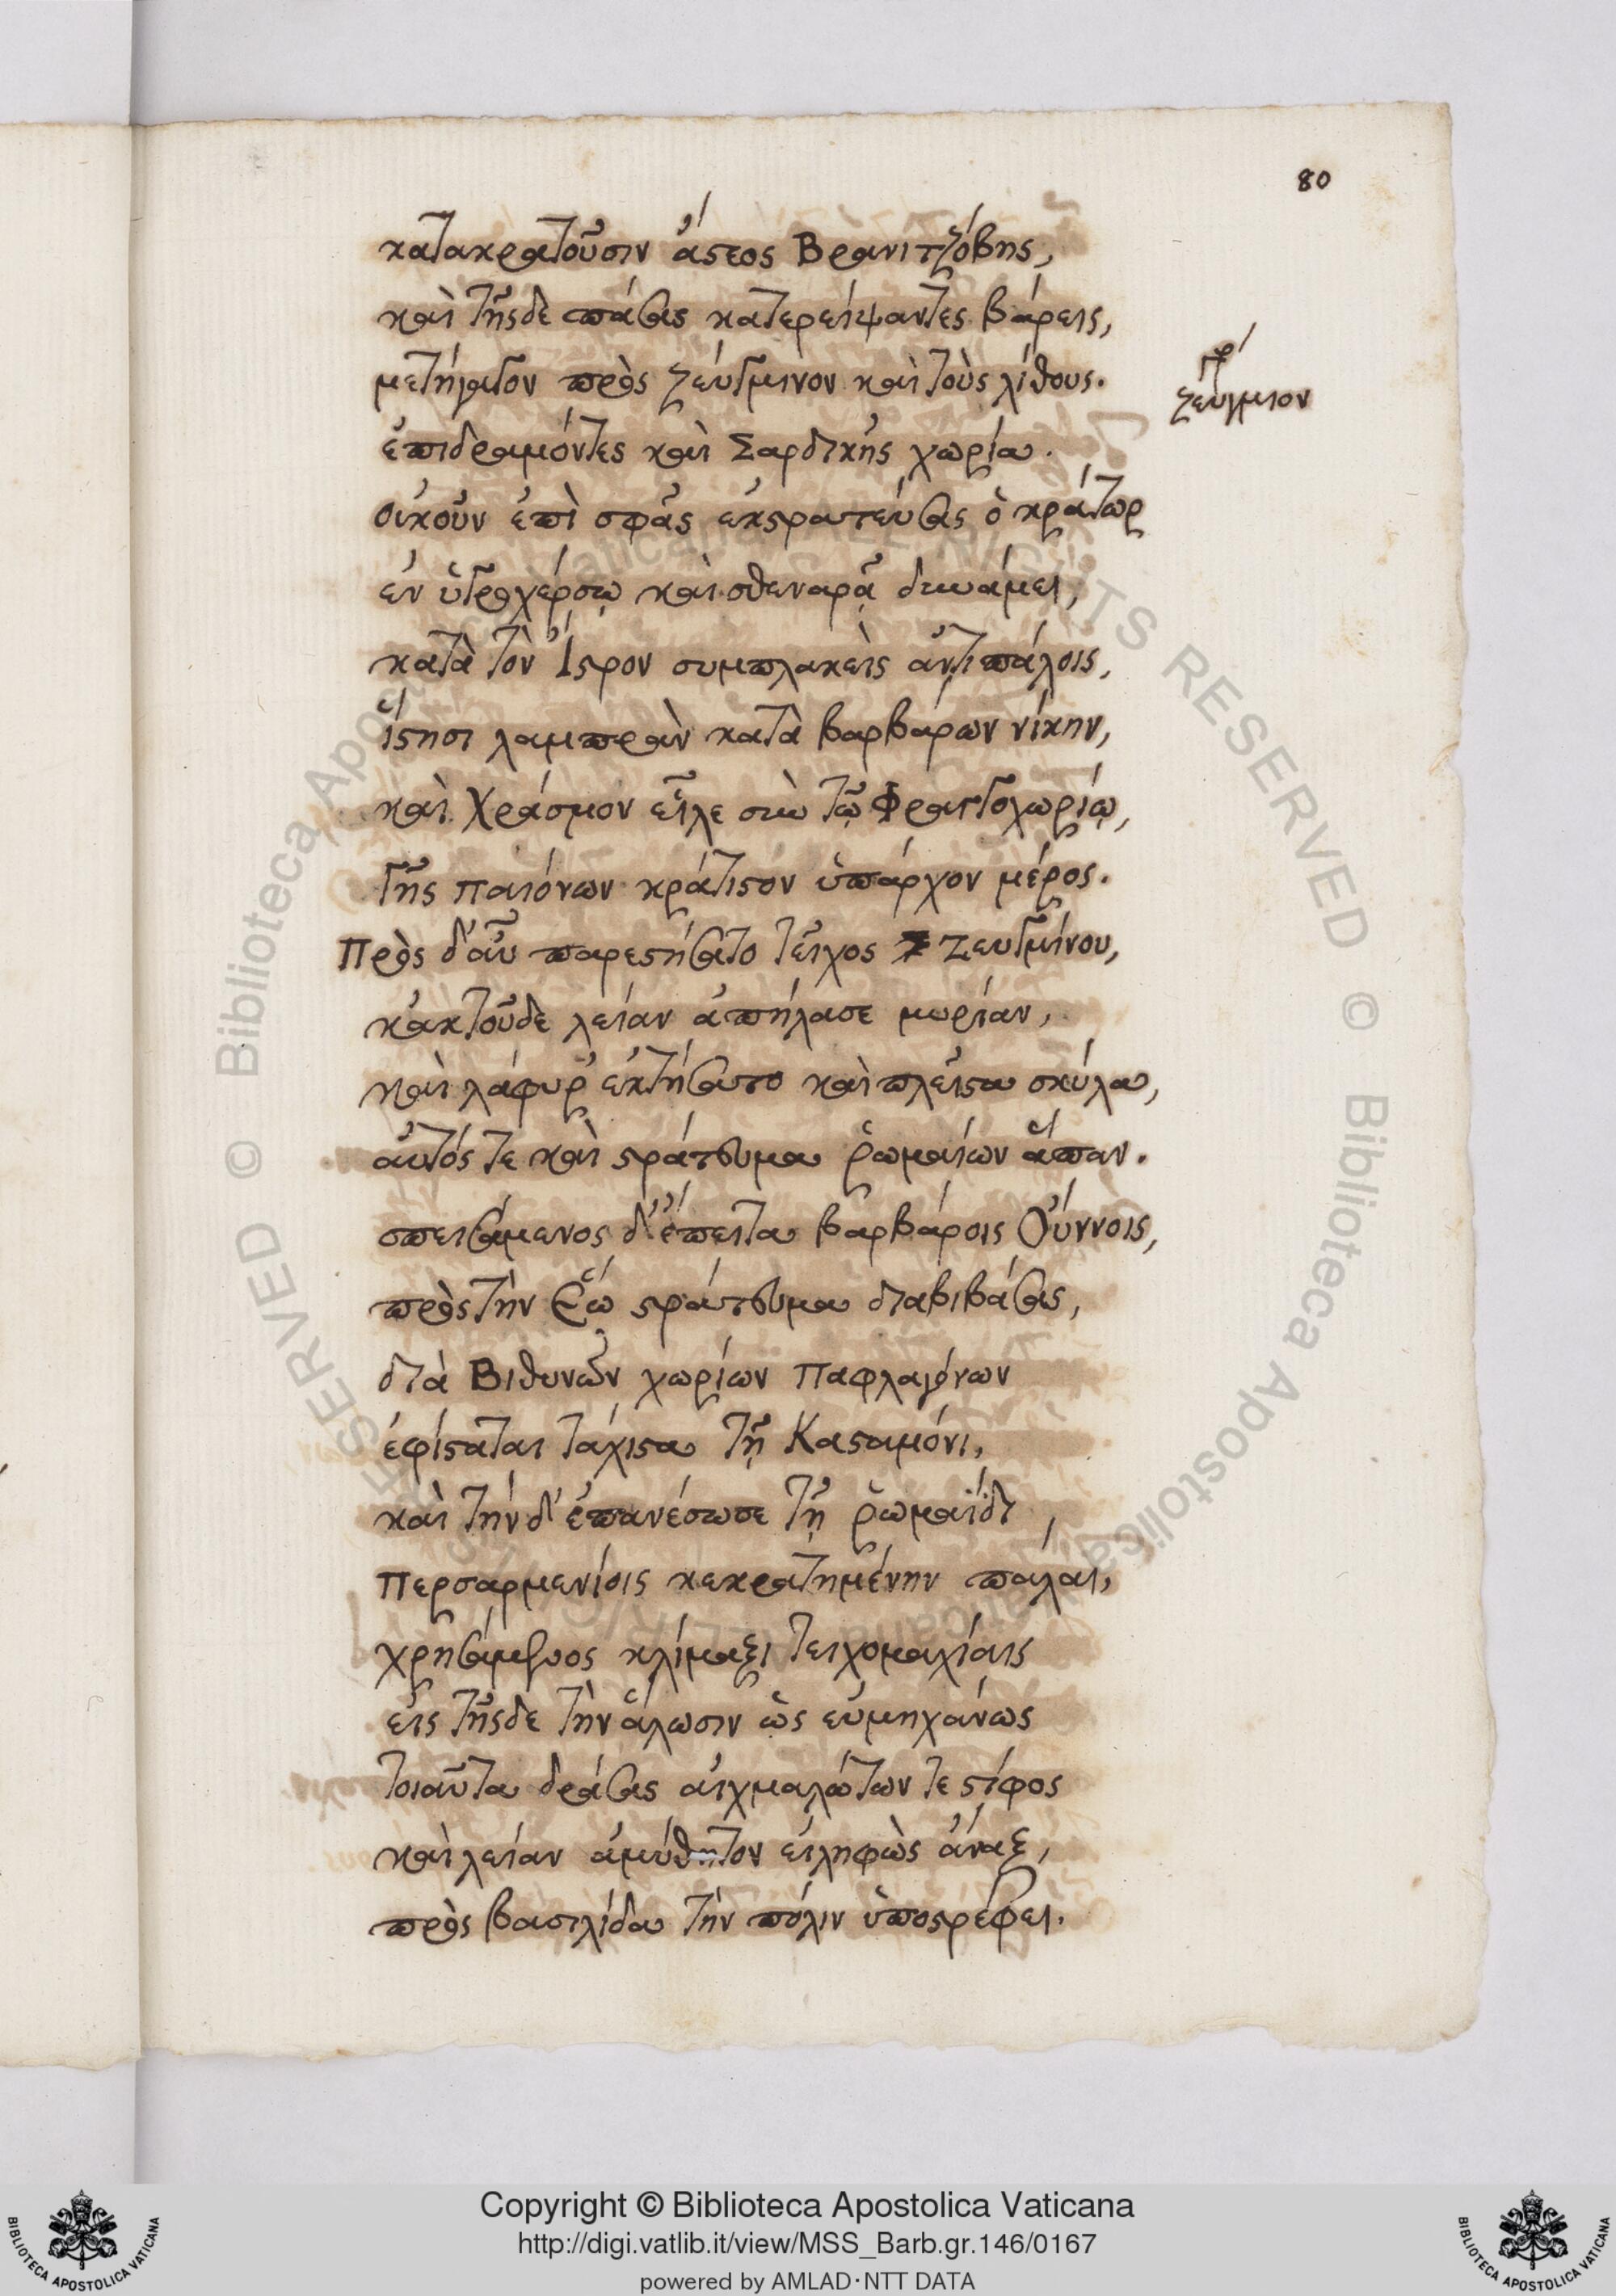 80
κατακρατοῦσιν ἄστεος Βρανιτζόβης,
καὶ τῆσδε πάσας κατερείψαντες βάρεις,
μετήγαγον πρὸς ζεύγμινον καὶ τοὺς λίθους.
γρ
ζεύγμιον
ἐπιδραμόντες καὶ Σαρδικῆς χωρία.
οὐκοῦν ἐπὶ σφᾶς ἐκστρατεύσας ὁ κράτωρ
ἐν ὑγροχέρσῳ καὶ σθεναρᾷ δυνάμει,
κατὰ τὸν Ἴστρον συμπλακεὶς ἀντιπάλοις,
ἵστησι λαμπρὰν κατὰ βαρβάρων νίκην,
καὶ Χράσμον εἷλε σὺν τῷ Φραγγοχωρίῳ,
τῆς Παιόνων κράτιστον ὑπάρχον μέρος.
Πρὸς δ' αὖ παρεστήσατο τεῖχος Ζευγμίνου,
κἀκ τοῦδε λείαν ἀπήλασε μυρίαν,
καὶ λάφυρ' ἐκτήσατο καὶ πλεῖστα σκύλα,
αὐτός τε καὶ στράτευμα ῥωμαίων ἅπαν.
σπεισάμενος δ' ἔπειτα βαρβάροις Οὔννοις,
πρὸς τὴν Ἕω στράτευμα διαβιβάσας,
διὰ Βιθυνῶν χωρίων Παφλαγόνων
ἐφίσταται τάχιστα τῇ Κασταμόνι,
καὶ τήνδ' ἐπανέσωσε τῇ ῥωμαΐδι,
Περσαρμενίοις κεκρατημένην πάλαι,
χρησάμενος κλίμαξι τειχομαχίαις
εἰς τῆσδε τὴν ἅλωσιν ὡς εὐμηχάνως
τοιαῦτα δράσας αἰχμαλώτων τε στίφος
καὶ λείαν ἀμύθητον εἰληφὼς ἄναξ,
πρὸς βασιλίδα τὴν πόλιν ὑποστρέφει.
Copyright © Biblioteca Apostolica Vaticana
http://digi.vatlib.it/view/MSS_Barb.gr.146/0167
powered by AMLAD·NTT DATA